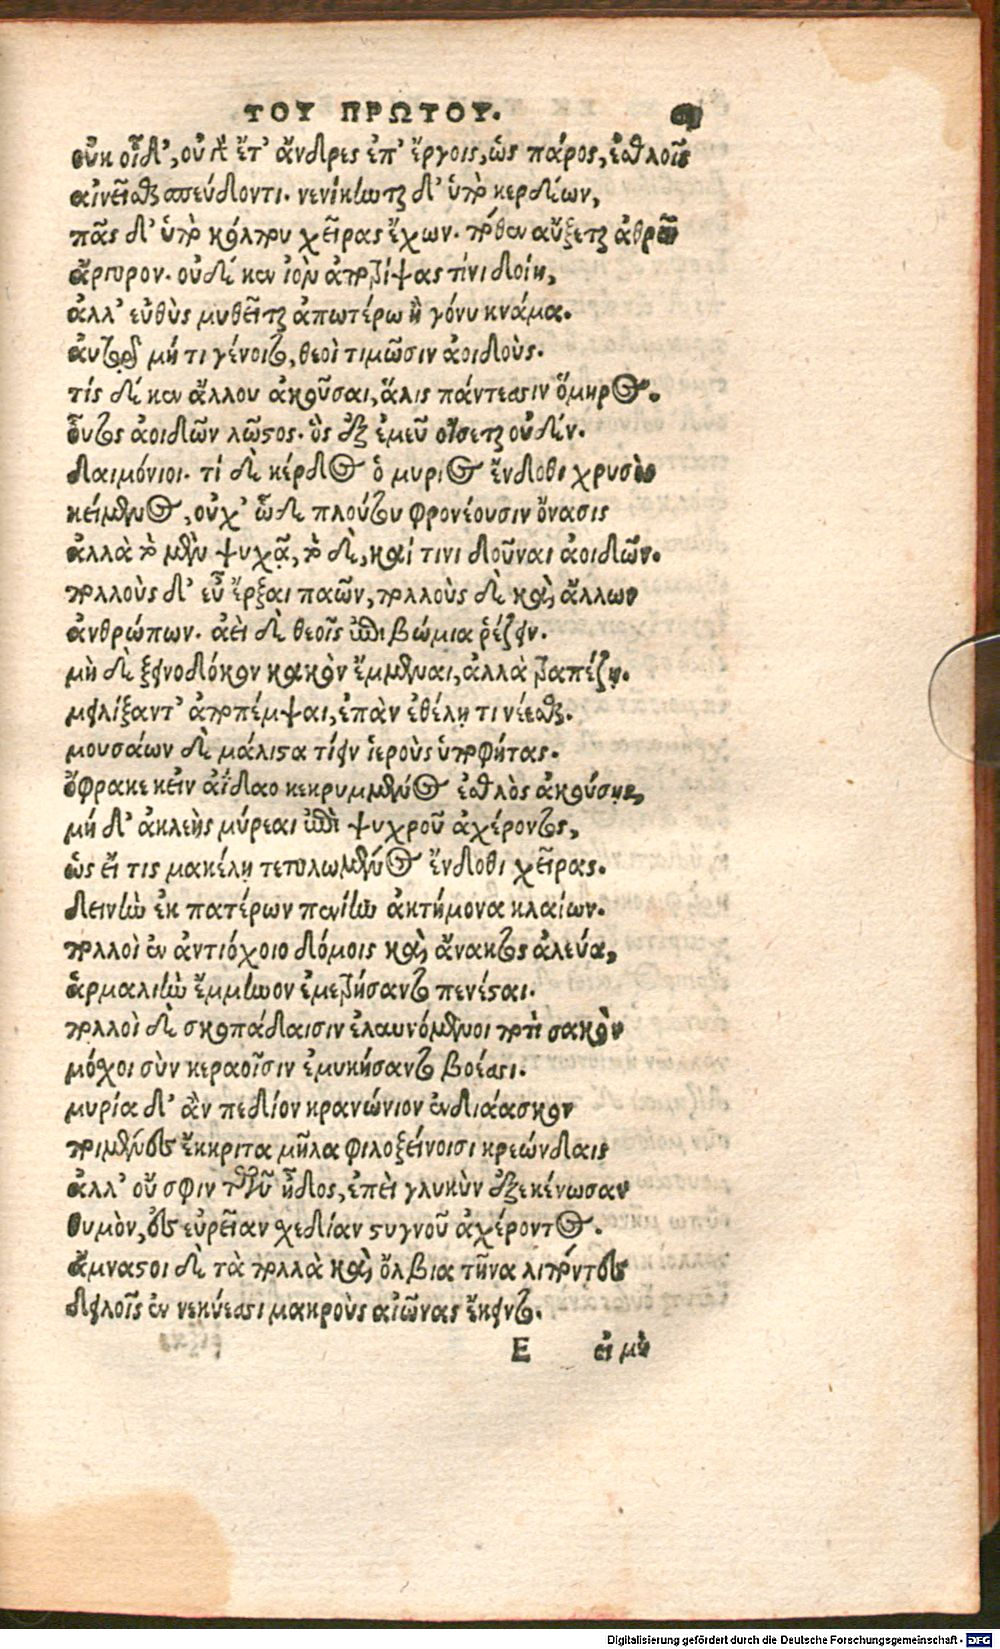 ΤΟΥ ΠΡΩΤΟΥ.
οὐκ οἶδ', οὐ γὰρ ἔτ' ἄνδρες ἐπ' ἔργοις, ὡς πάρος, ἐσθλοῖς
αἰνεῖσθαι σπεύδοντι. νενίκηνται δ' ὑπὸ κερδέων,
πᾶς δ' ὑπὸ κόλπου χεῖρας ἔχων. πόθεν αὔξεται ἀθρεῖ
ἄργυρον. οὐδέ κεν ἰὸν ἀποτρίψας τινὶ δοίη,
ἀλλ' εὐθὺς μυθεῖται ἀπωτέρω ἢ γόνυ κνάμα.
αὐτῷ μή τι γένοιτο, θεοὶ τιμῶσιν ἀοιδοὺς.
τίς δέ κεν ἄλλου ἀκοῦσαι, ἅλις πάντεσσιν ὅμηρος.
οὗτος ἀοιδῶν λῶστος. ὃς ἐξ ἐμεῦ οἴσεται οὐδέν.
δαιμόνιοι. τί δὲ κέρδος ὁ μυρίος ἔνδοθι χρυσὸς
κείμενος, οὐχ' ὧδε πλούτου φρονέουσιν ὄνασις
ἀλλὰ τὸ μὲν ψυχᾷ, τὸ δὲ, καί τινι δοῦναι ἀοιδῶν.
πολλοὺς δ' εὖ ἔρξαι παῶν, πολλοὺς δὲ καὶ ἄλλων
ἀνθρώπων. ἀεὶ δὲ θεοῖς ἐπιβώμια ῥέζειν.
μὴ δὲ ξεινοδόκον κακὸν ἔμμεναι, ἀλλὰ τραπέζῃ.
μειλίξαντ' ἀποπέμψαι, ἐπὰν ἐθέλῃ τι νέεσθαι.
μουσάων δὲ μάλιστα τίειν ἱεροὺς ὑποφήτας.
ὄφρα κε κεὶν ἀΐδαο κεκρυμμένος ἐσθλὸς ἀκούσῃς,
μή δ' ἀκλεὴς μύρεαι ἐπὶ ψυχροῦ ἀχέροντος,
ὡς εἴ τις μακέλῃ τετυλωμένος ἔνδοθι χεῖρας.
δεινὴν ἐκ πατέρων πενίην ἀκτήμονα κλαίων.
πολλοὶ ἐν ἀντιόχοιο δόμοις καὶ ἄνακτος ἀλεύα,
ἁρμαλιὴν ἔμμηνον ἐμετρήσαντο πενέσται.
πολλοὶ δὲ σκοπάδαισιν ἐλαυνόμενοι ποτὶ σακὸν
μόσχοι σὺν κεραοῖσιν ἐμυκήσαντο βοέσσι.
μυρία δ' ἂν πεδίον κρανώνιον ἐνδιάασκον
ποιμένες ἔκκριτα μῆλα φιλοξείνοισι κρεώνδαις
ἀλλ' οὔ σφιν τῶν ἦδος, ἐπεὶ γλυκὺν ἐξεκένωσαν
θυμὸν, ἐς εὐρεῖαν σχεδίαν στυγνοῦ ἀχέροντος.
ἄμναστοι δὲ τὰ πολλὰ καὶ ὄλβια τῆνα λιπόντες
δειλοῖς ἐν νεκύεσσι μακροὺς αἰῶνας ἔκειντο.
E εἰ μὴ
Digitalisierung gefördert durch die Deutsche Forschungsgemeinschaft - DFG